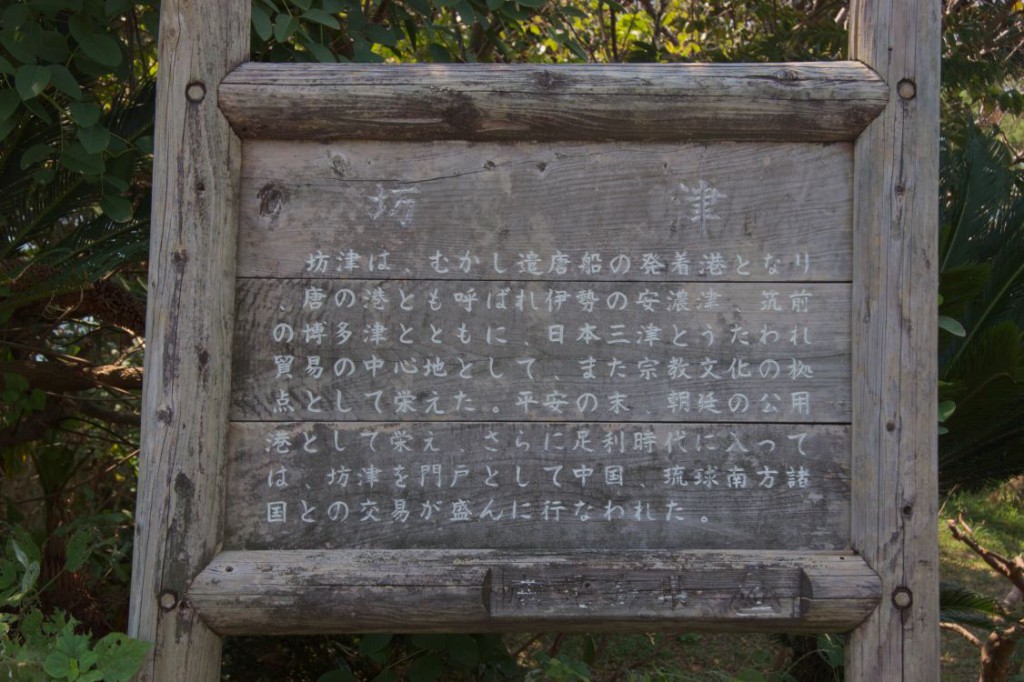 坊津
坊津は、むかし遣唐船の発着港となり
、唐の港とも呼ばれ伊勢の安濃津、筑前
の博多津とともに、日本三津とうたわれ
貿易の中心地として、また宗教文化の拠
点として栄えた。平安の末、朝廷の公用
港として栄え、さらに足利時代に入って
は、坊津を門戸として中国、琉球南方諸
国との交易が盛んに行なわれた。